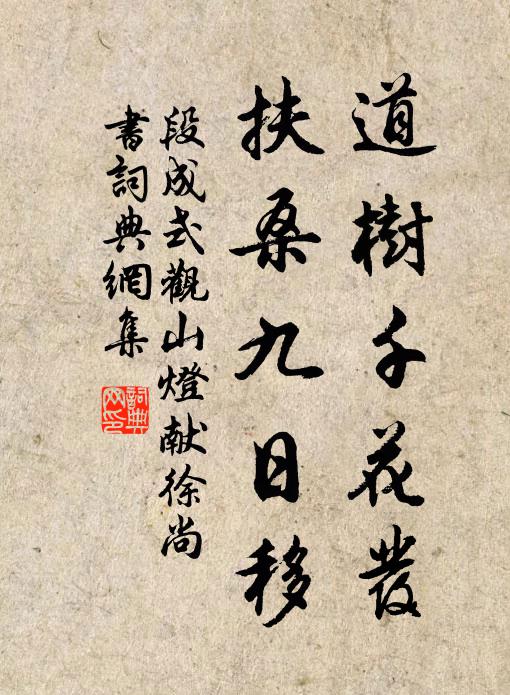 道樹千花發
扶桑九日移
段成式觀山燈献徐尚
書詞典網集
詞典
网印